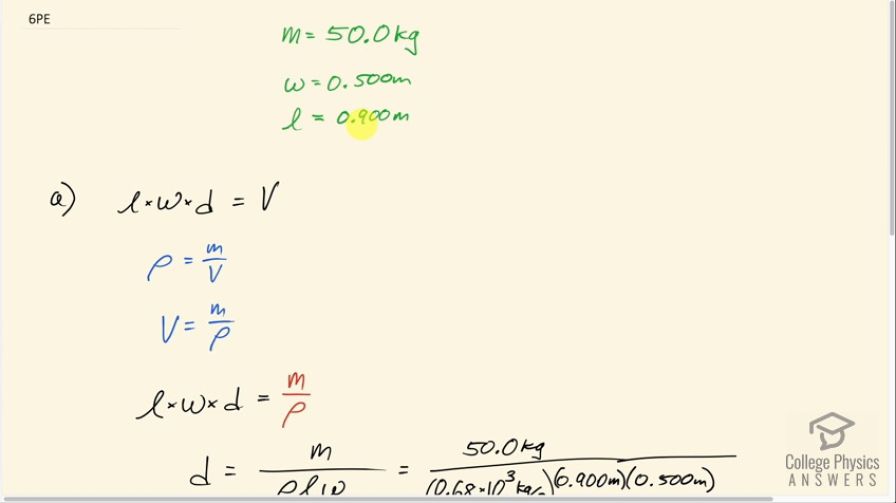 6PE
m = 50.0 kg
w = 0.500 m
l = 0.900 m
a) l × w × d = V
ρ = m/V
V = m/ρ
l × w × d = m/ρ
d = m/ρlw = 50.0 kg/(0.68 × 10³ kg/)(0.900 m)(0.500 m)
College Physics
ANSWERS